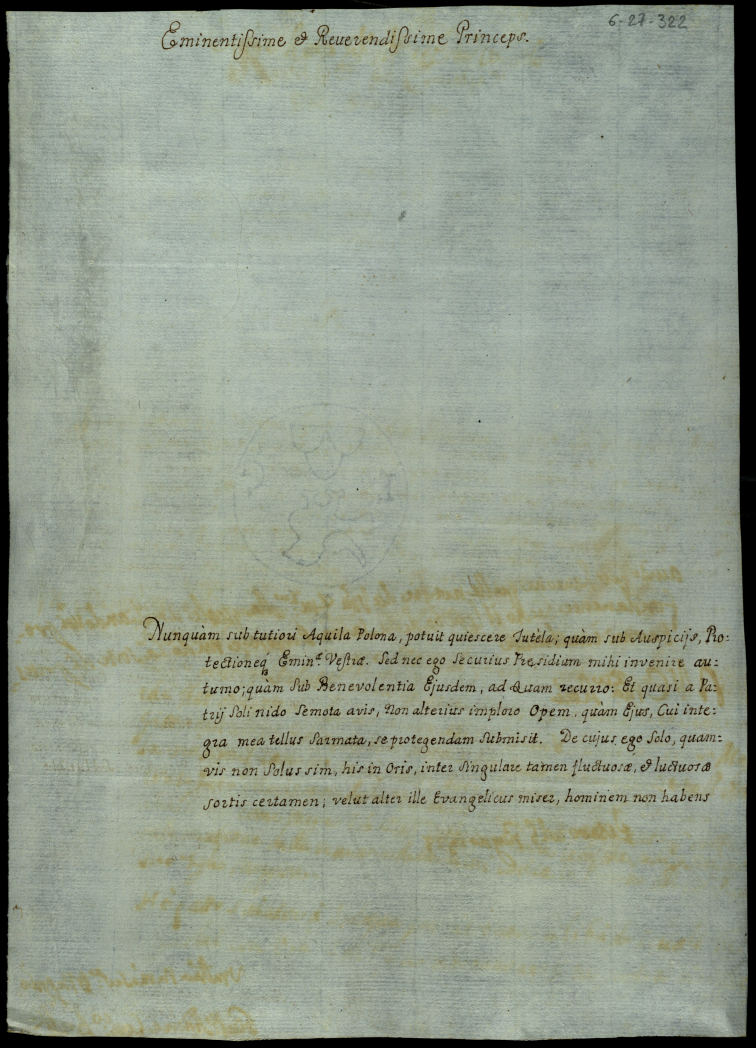 6-27-322
Eminentissime & Reverendissime Princeps.
Nunquàm sub tutiori Aquila Polona, potuit quiescere Tutèla; quàm sub Auspicijs, Pro=
tectioneq₃ Emin.ᵉ Vestræ. Sed nec ego Securius Præsidium mihi invenire au=
tumo; quàm Sub Benevolentia Ejusdem, ad Quam recurro: Et quasi a Pa=
trij Soli nido Semota avis, Non alterius imploro Opem, quàm Ejus, Cui inte=
gra mea tellus Sarmata, se protegendam Submisit. De cujus, ego Solo, quam=
vis non Solus sim, his in Oris, inter Singulare tamen fluctuosæ, & luctuosæ
sortis certamen; velut alter ille Evangelicus miser, hominem non habens